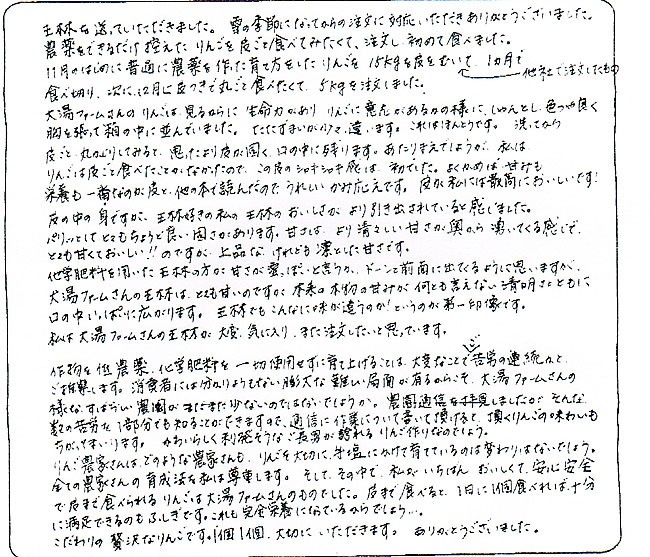 王林を送っていただきました。雪の季節になってからの注文に対応いただきありがとうございました。
農薬をできるだけ控えたりんごを皮ごと食べてみたくて、注文し初めて食べました。
11月のはじめに普通に農薬を作た育て方をしたりんごを15kgを皮をむいて、1カ月で
他社で注文したもの
食べ切り、次に、12月に皮つきで丸ごと食べたくて、5kgを注文しました。
大湯ファームさんのりんごは、見るからに生命力があり りんごに意志があるかの様に、しゃんとし、色つや良く
胸を張って箱の中に並んでいました。たたずまいが少々、違います。これはほんとうです。洗ってから
皮ごと、丸かぶりしてみると、思ったより皮が固く、口の中に残ります。あたりまえでしょうが、私は
りんごは皮ごと食べたことがなかったので、この皮のシャキシャキ感は、初でした。よくかめば、甘みも
栄養も一番なのが皮と、他の本で読んだので うれしいかみ応えです。皮が私には最高においしいです!
皮の中の身ですが、王林好きの私の王林のおいしさがより引き出されていると感じました。
パリッとしてとてもちょうど良い固さがあります。甘さは、より清々しい甘さが奥から湧いてくる感じで、
とても甘くておいしい!!のですが、上品な、けれども凛とした甘さです。
化学肥料を用いた王林の方が甘さが愛っぽいと言うか、ドーンと前面に出てくるように思いますが、
大湯ファームさんの王林は、とても甘いのですが 本来の本物の甘みが何とも言えない清明さとともに
口の中いっぱいに広がります。王林でもこんなに味が違うのか!というのが第一印像です。
私は大湯ファームさんの王林が大変、気に入り、また注文したいと思っています。
作物を低農薬、化学肥料を一切使用せずに育て上げることは、大変なことで苦労の連続かと、
ご推察します。消費者には分かりようもない膨大な難しい局面が有るからこそ、大湯ファームさんの
様なすばらしい農園がまだまだ少ないのではないでしょうか。農園通信を拝見しましたが そんな
数の苦労を1部分でも知ることができますので、通信に作業について書いて頂けると、頂くりんごの味わいも
ちがってまいります。かわいらしく利発そうなご長男が誇れるりんご作りなのでしょう。
りんご農家さんは、どのような農家さんも、りんごを大切に、手塩にかけて育てているのは変わりはないでしょう。
全ての農家さんの育成法を私は尊重します。そして、その中で、私がいちばん おいしくて、安心安全
で皮まで食べられるりんごは大湯ファームさんのものでした。皮まで食べると、1日に1個食べれば、十分
に満足できるのもふしぎです。これも完全栄養に似ているからでしょう…。
こだわりの贅沢なりんごです。1個1個、大切に いただきます。ありがとうございました。